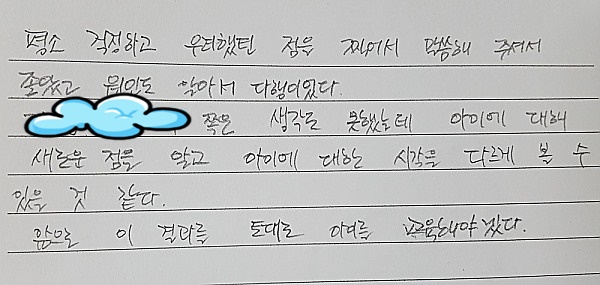 평소 걱정하고 우려했던 점을 찍어서 말씀해 주셔서
좋았고 원인도 알아서 다행이었다.
쪽은 생각도 못했는데 아이에 대해
새로운 점을 알고 아이에 대한 시각을 다르게 볼 수
있을 것 같다.
앞으로 이 결과를 토대로 아이를 교육해야겠다.